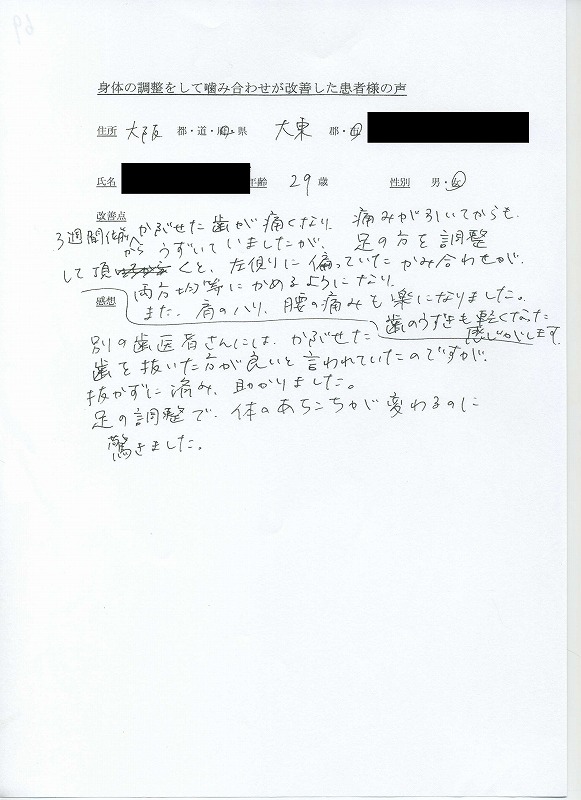 身体の調整をして噛み合わせが改善した患者様の声
住所 大阪 都・道・府・県 大東 郡・市
氏名 年齢 29 歳 性別 男・女
改善点
3週間位前から かぶせた歯が痛くなり、痛みが引いてからも、
うずいていましたが、足の方を調整
して頂くと、左側りに偏っていたかみ合わせが、
両方均等にかめるようになり、
また、肩のハリ、腰の痛みも楽になりました。
歯のうずきも軽くなった
感じがします。
感想
別の歯医者さんには、かぶせた
歯を抜いた方が良いと言われていたのですが、
抜かずに済み、助かりました。
足の調整で、体のあちこちが変わるのに
驚きました。